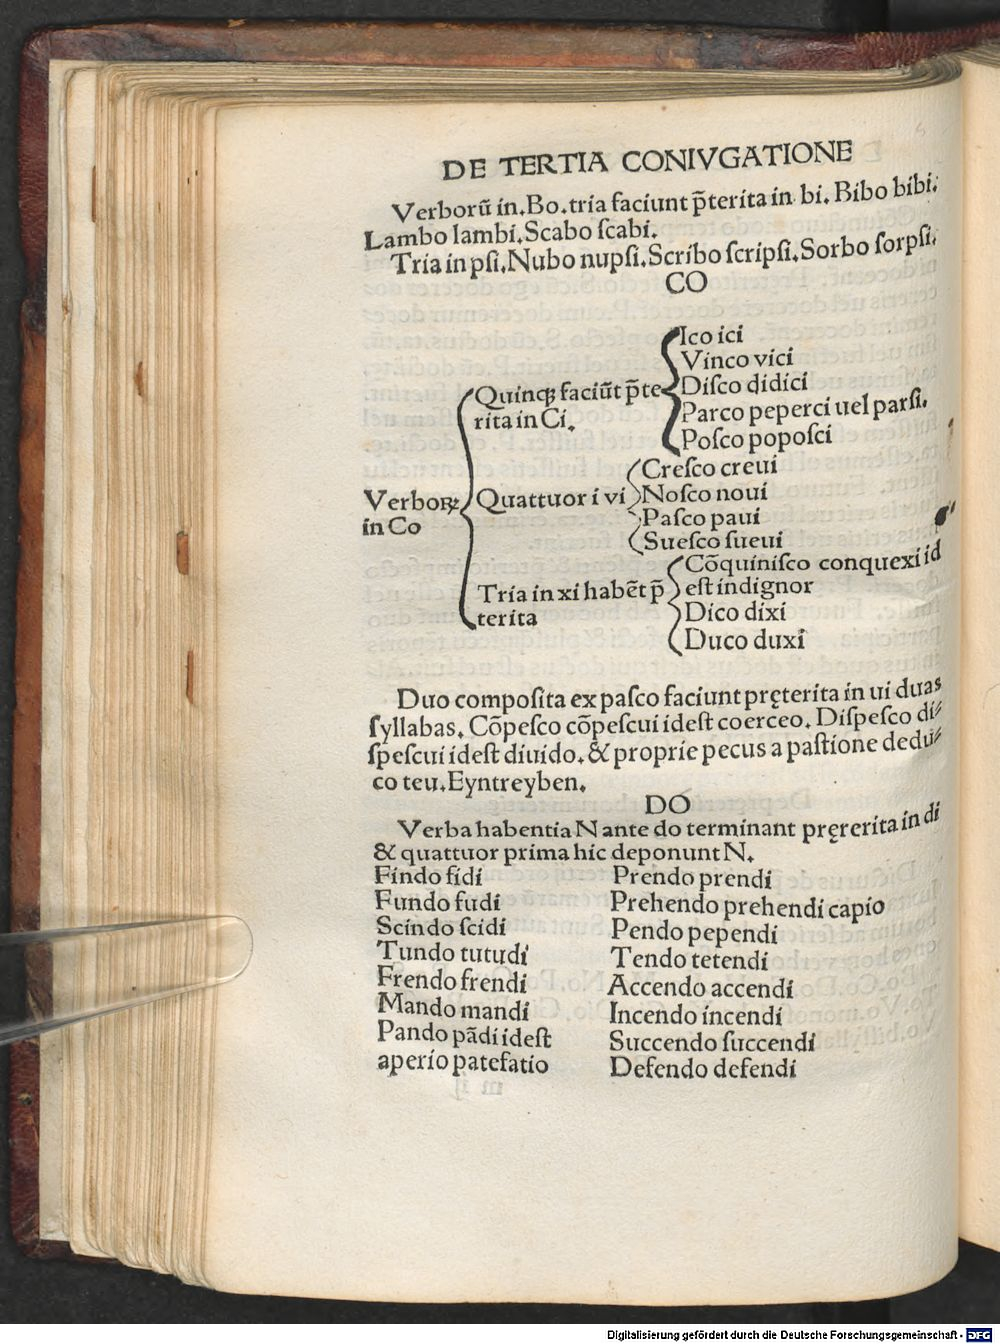 DE TERTIA CONIVGATIONE
Verborū in.Bo.tria faciunt p̄terita in bi.Bibo bibi.
Lambo lambi.Scabo ſcabi.
Tria in pſi.Nubo nupſi.Scribo ſcripſi.Sorbo ſorpſi.
CO
Verboꝝ
in Co
Quinqꝫ faciūt p̄te
rita in Ci.
Ico ici
Vinco vici
Diſco didici
Parco peperci uel parſi.
Poſco popoſci
Quattuor i vi
Creſco creui
Noſco noui
Paſco paui
Sueſco ſueui
Tria in xi habēt p̄
terita
Cōquiniſco conquexi id
eſt indignor
Dico dixi
Duco duxi
Duo compoſita ex paſco faciunt pręterita in ui duas
ſyllabas. Cōpeſco cōpeſcui ideſt coerceo. Diſpeſco di⸗
ſpeſcui ideſt diuido. & proprie pecus a paſtione dedu⸗
co teu.Eyntreyben.
DO
Verba habentia N ante do terminant pręrerita in di
& quattuor prima hic deponunt N.
Findo fidi
Fundo fudi
Scindo ſcidi
Tundo tutudi
Frendo frendi
Mando mandi
Pando pādi ideſt
aperio patefatio
Prendo prendi
Prehendo prehendi capio
Pendo pependi
Tendo tetendi
Accendo accendi
Incendo incendi
Succendo ſuccendi
Defendo defendi
Digitalisierung gefördert durch die Deutsche Forschungsgemeinschaft - DFG